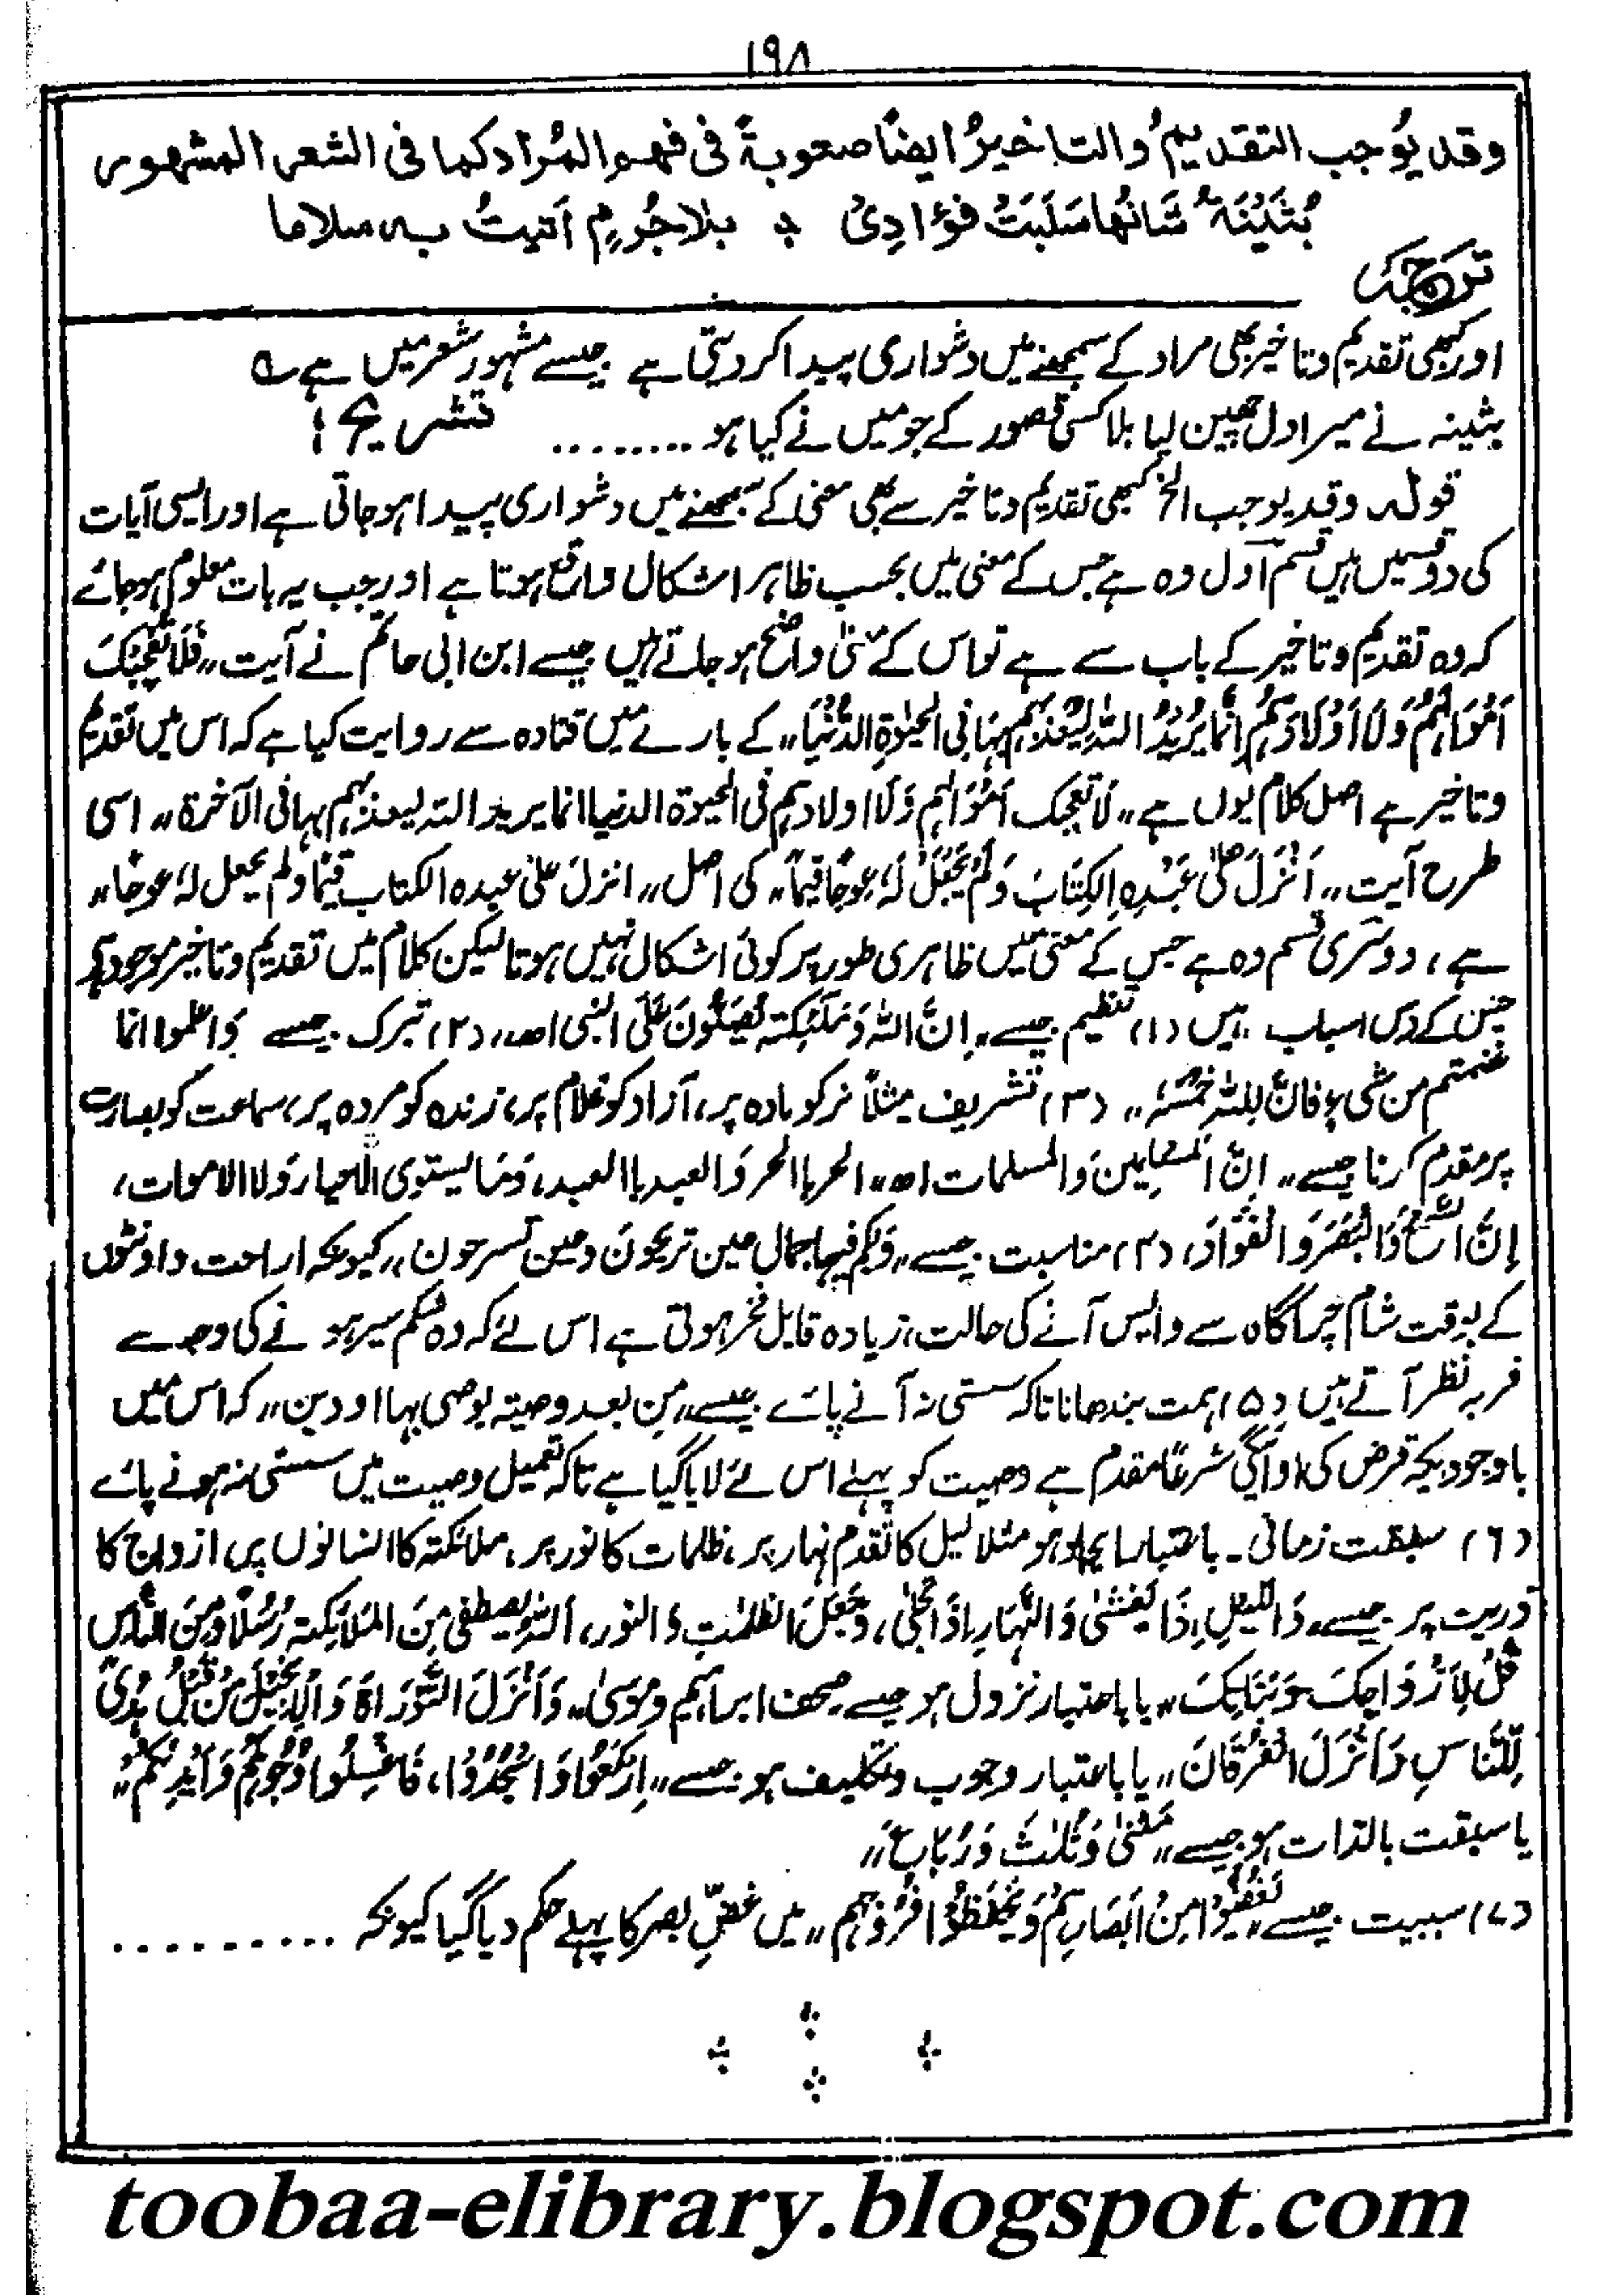 ١٩٨
وقد يُوجب التقديمُ والتاخيرُ ايضًا صعوبةً فى فهم المُراد كما فى الشعر المشهور
بُثَيْنَةُ شَانُهَا سَلَبَتْ فؤادِىْ ؞ بلا جُرمٍ اَتيتُ به سلاما
ترجمہ
اور کبھی تقدیم وتاخیر بھی مراد کے سمجھنے میں دشواری پیدا کر دیتی ہے جیسے مشہور شعر میں ہے ؎
بثینہ نے میرا دل چھین لیا بلا کسی قصور کے جو میں نے کیا ہو ......... تشریح :
قولہ وقد یوجب الخ کبھی تقدیم وتاخیر سے بھی معنی کے سمجھنے میں دشواری پیدا ہو جاتی ہے اور ایسی آیات
کی دو قسمیں ہیں قسم اول وہ ہے جس کے معنی میں بحسب ظاہر اشکال واقع ہوتا ہے اور جب یہ بات معلوم ہو جائے
کہ وہ تقدیم وتاخیر کے باب سے ہے تو اس کے معنیٰ واضح ہو جاتے ہیں جیسے ابن ابی حاتم نے آیت ،،فَلَا تُعْجِبْكَ
اَمْوَالُهُمْ وَلَا اَوْلَادُهُمْ اِنَّمَا يُرِيْدُ اللّٰهُ لِيُعَذِّبَهُمْ بِهَا فِى الْحَيٰوةِ الدُّنْيَا،، کے بارے میں قتادہ سے روایت کیا ہے کہ اس میں تقدیم
وتاخیر ہے اصل کلام یوں ہے ،،لَا تعجبك اَمْوَالهم وَلَا اولادهم فى الحيوة الدنيا انما يريد الله ليعذبهم بها فى الآخرة،، اسی
طرح آیت ،،اَنْزَلَ عَلٰى عَبْدِهِ الْكِتَابَ وَلَمْ يَجْعَلْ لَهٗ عِوَجًا قَيِّمًا،، کی اصل ،،انزلَ علیٰ عبده الكتاب قيّما ولم يجعل لهٗ عوجًا،،
ہے، دوسری قسم وہ ہے جس کے معنی میں ظاہری طور پر کوئی اشکال نہیں ہوتا لیکن کلام میں تقدیم وتاخیر موجود ہے
جن کے دس اسباب ہیں (۱) تعظیم جیسے ،،اِنَّ اللهَ وَمَلٰئِكته يُصَلُّونَ عَلَى النبى اھ،، (۲) تبرک جیسے وَاعلموا انما
غنمتم من شئ فانَّ للهِ خُمُسَهٗ،، (۳) تشریف مثلاً نر کو مادہ پر، آزاد کو غلام پر، زندہ کو مردہ پر، سماعت کو بصارت
پر مقدم کرنا جیسے ،،اِنَّ المُسْلِمِينَ وَالمسلمات اھ،، الحر باالحر وَالعبد باالعبد، وَمَا يستوى الاحيار وَلا الاموات،
اِنَّ السَّمْعَ وَالْبَصَرَ وَ الْفُؤَادَ، (۴) مناسبت جیسے ،،وَلكم فيها جمال حين تريحون وحين تسرحون،، کیونکہ اراحت داونٹوں
کے بوقت شام چراگاہ سے واپس آنے کی حالت، زیادہ قابل فخر ہوتی ہے اس لئے کہ وہ شکم سیر ہونے کی وجہ سے
فربہ نظر آتے ہیں (۵) ہمت بندھانا تاکہ سستی نہ آنے پائے جیسے ،،مِن بعد وصيته يوصى بها اودين،، کہ اس میں
باوجودیکہ قرض کی ادائیگی شرعًا مقدم ہے وصیت کو پہلے اس لئے لایا گیا ہے تاکہ تعمیل وصیت میں سستی نہ ہونے پائے
(۶) سبقت زمانی ۔ باعتبار ایجاد ہو مثلا لیل کا تقدم نہار پر، ظلمات کا نور پر، ملائکتہ کا انسانوں پر، ازواج کا
ذریت پر جیسے ،،وَاللَّيلِ اِذَا يَغْشٰى وَالنَّهَارِ اِذَا تَجَلّٰى، وَجَعَلَ الظلمٰتِ وَ النور، اَللهُ يصطفى مِنَ المَلَائِكته رُسُلًا وَّمِنَ النَّاسِ
قُلْ لِاَزْوَاجِكَ وَبَنَاتِكَ،، یا باعتبار نزول ہو جیسے صحف ابراہیم وموسىٰ، وَاَنْزَلَ التَّوْرَاةَ وَ الْاِنْجِيْلَ مِنْ قَبْلُ هُدًى
لِّلنَّاسِ وَاَنْزَلَ الْفُرْقَانَ،، یا باعتبار وجوب وتکلیف ہو جیسے ،،اِرْكَعُوْا وَاسْجُدُوْا، فَاغْسِلُوا وُجُوْهَكُمْ وَاَيْدِيَكُمْ،،
یا سبقت بالذات ہو جیسے ،،مَثْنٰى وَثُلٰثَ وَرُبَاعَ،،
(۷) سببیت جیسے ،،يَغُضُّوْا مِنْ اَبْصَارِهِمْ وَيَحْفَظُوْا فُرُوْجَهُمْ،، میں غضِّ بصر کا پہلے حکم دیا گیا کیونکہ ..........
toobaa-elibrary.blogspot.com